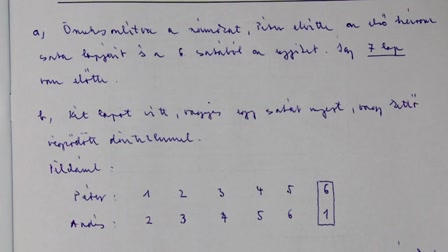 a, Összeszámlálva a számokat, Péter elvitte az első három
csata lapjait és a 6. csatából az egyiket. Így 7 lap
van előtte.
b, Két lapot vitt, vagyis egy csatát nyert, vagy kettő
végződött döntetlennel.
Például:
Péter: 1 2 3 4 5 6
András: 2 3 7 5 6 1